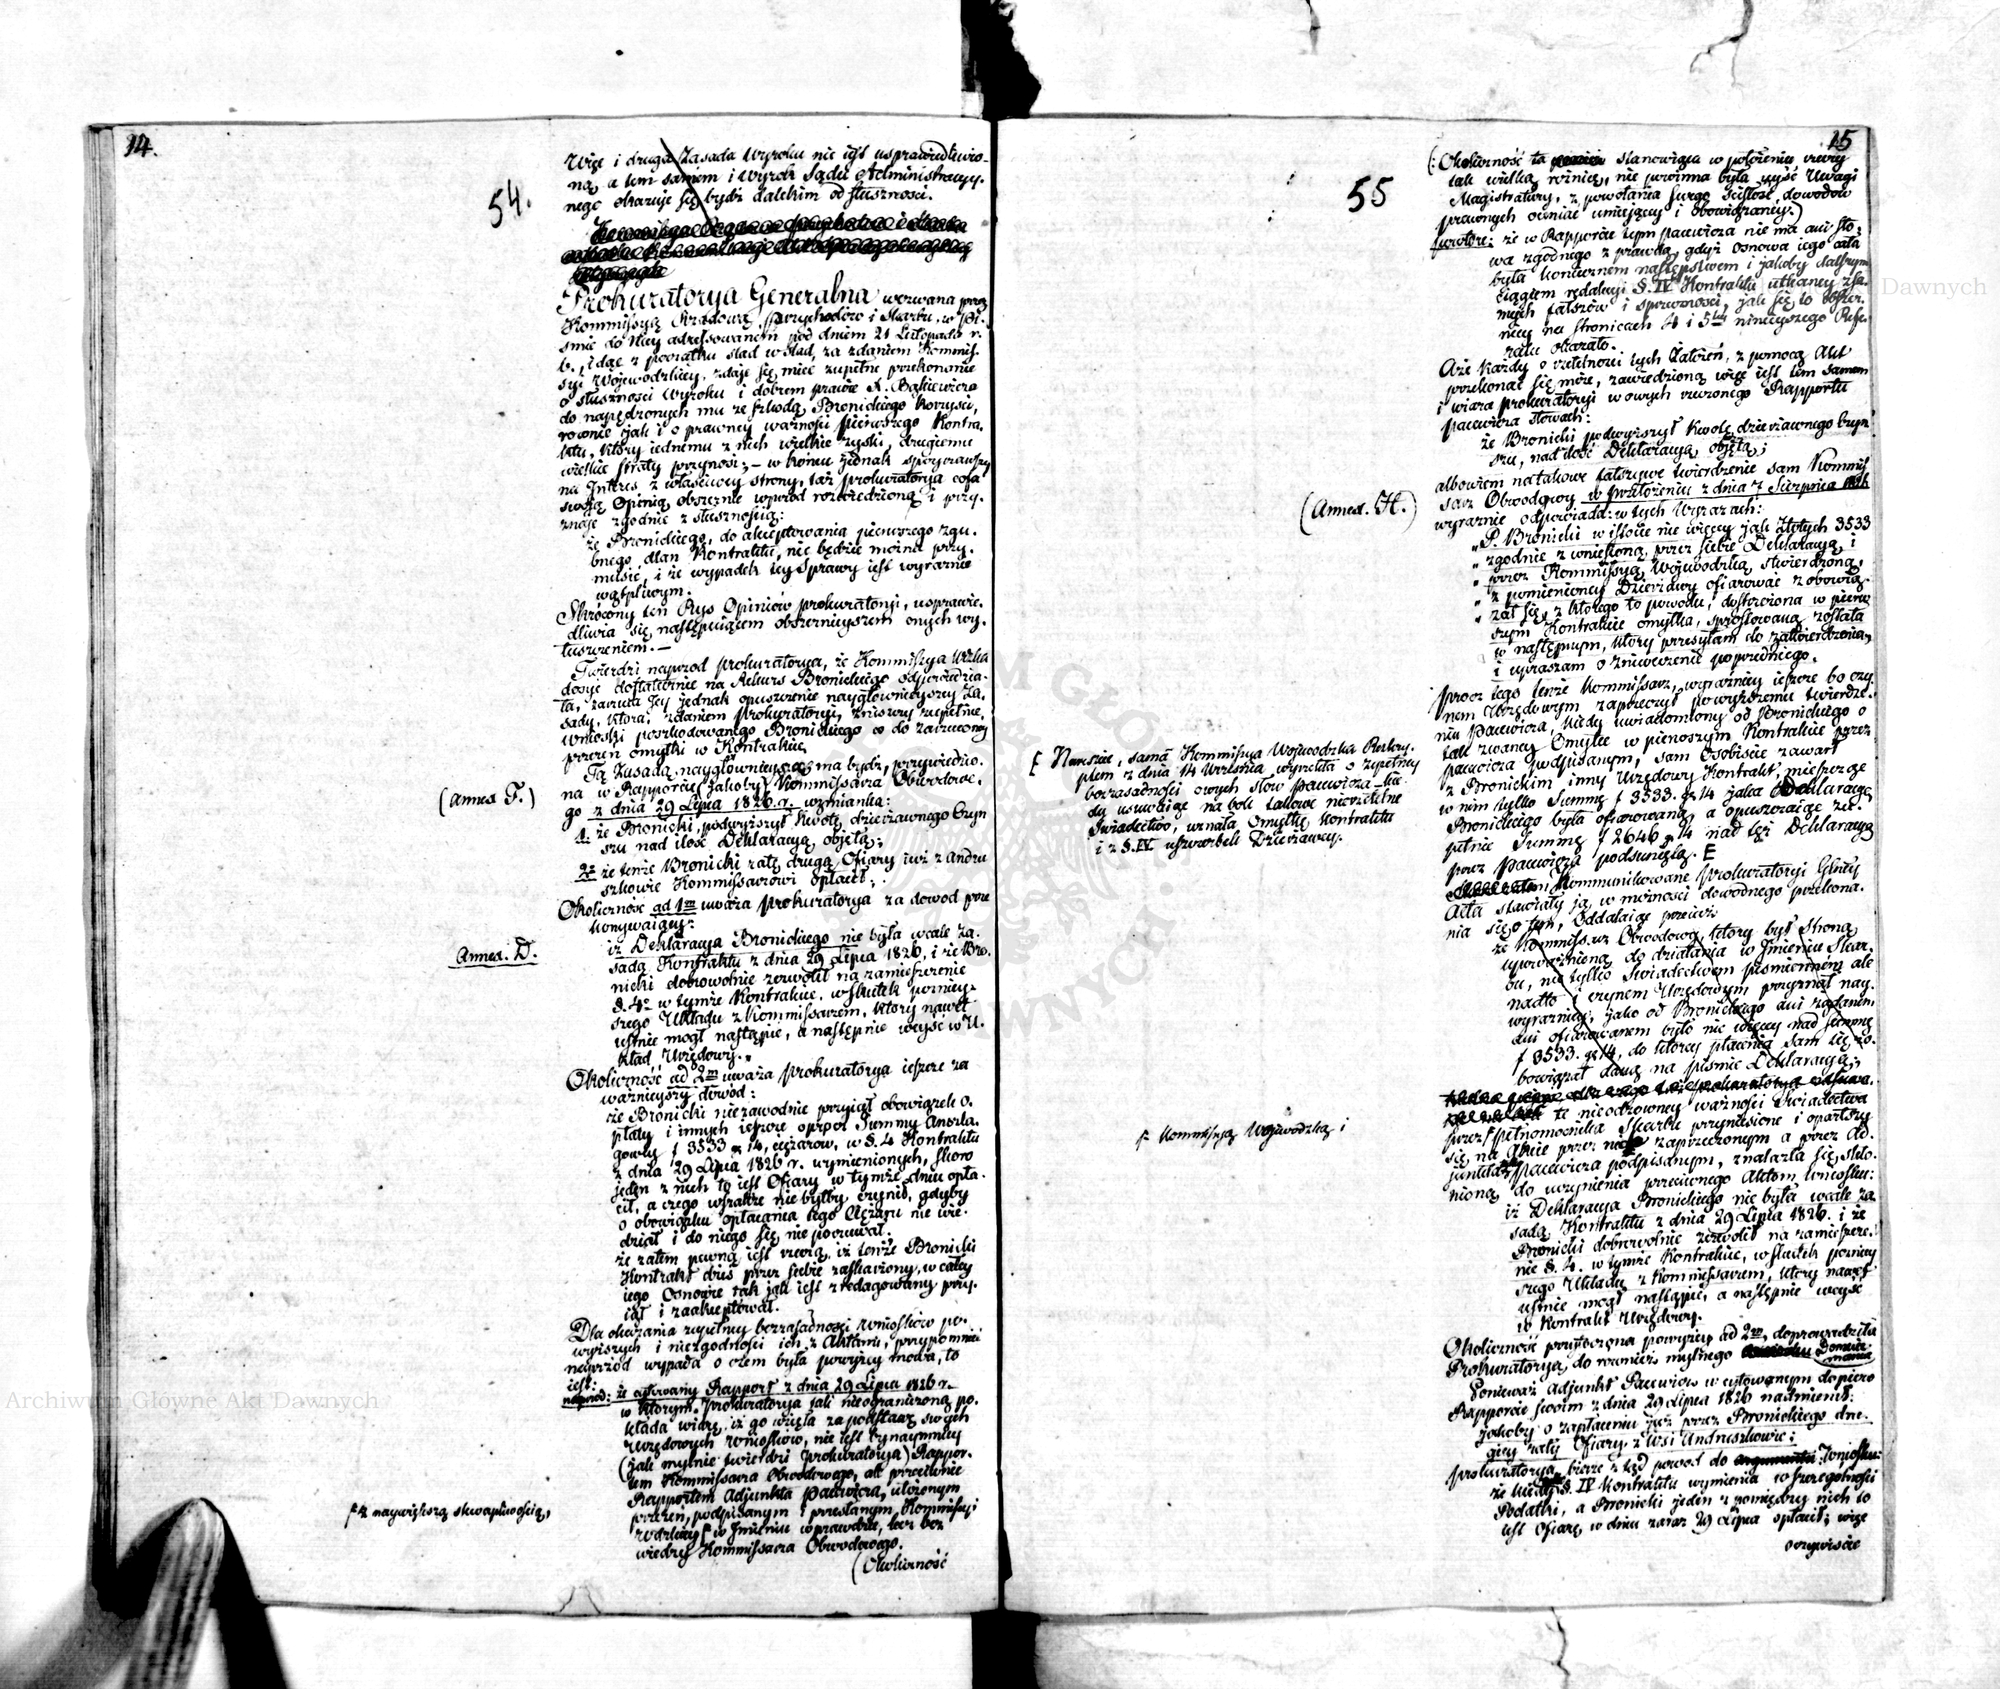 14.
54.
Więc i druga Zasada Wyroku nie iest usprawiedliwio-
ną, a tem samem i Wyrok Sądu Administracyy-
nego okazuie się bydź dalekim od słuszności.
Prokuratorya Generalna wezwana przez
Kommissyą Rządową Przychodów i Skarbu, w Pi-
śmie do Niey adressowanem pod dniem 21 Listopada r.
b. idąc z początku ślad w ślad za zdaniem Kommis-
syi Woiewódzkiey, zdaie się mieć zupełne przekonanie
o słuszności Wyroku i dobrem prawie A. Bąkiewicza
do napędzonych mu ze szkodą Bronickiego korzyści,
równie jak i o prawney ważności pierwszego Kontra-
ktu, który iednemu z nich wielkie zyski, drugiemu
wielkie straty przynosi; – w końcu jednak spoyrzawszy
na Interes z właściwey strony, taż Prokuratorya cofa
swoią Opinią obszernie wprzód rozwiedzioną i przy-
znaie zgodnie z słusznością:
że Bronickiego, do akceptowania pierwszego zgu-
bnego dlań Kontraktu, nie będzie można przy-
musić, i że wypadek tey Sprawy iest wyraźnie
wątpliwym.
Skrócony ten Rys Opiniów Prokuratoryi, usprawie-
dliwia się następuiącem obszernieyszem onych wy-
łuszczeniem. –
Twierdzi naprzód Prokuratorya, że Kommissya Woiewó-
dzka dosyć dostatecznie na Rekurs Bronickiego odpowiedzia-
ła, zarzuca Jey jednak opuszczenie naygłównieyszey Za-
sady, która, zdaniem Prokuratoryi, zniszczy zupełnie,
wnioski poszkodowanego Bronickiego co do zarzuconey
przezeń omyłki w Kontrakcie.
(Annex F.)
Tą Zasadą naygłównieyszą ma bydź, przywiedzio-
na w Rapporcie (jakoby) Kommissarza Obwodowe-
go z dnia 29 Lipca 1826 r. wzmianka:
1. że Bronicki, podwyższył kwotę dzierżawnego Czyn-
szu nad ilość Deklaracyą objętą;
2. że tenże Bronicki ratę drugą Ofiary iuż z Andru-
szkowic Kommissarzowi opłacił;
Okoliczność ad 1m uważa Prokuratorya za dowód prze-
konywaiący:
Annex. D.
iż Deklaracya Bronickiego nie była wcale za-
sadą Kontraktu z dnia 29 Lipca 1826, i że Bro-
nicki dobrowolnie zezwolił na zamieszczenie
§. 4o w tymże Kontrakcie, w skutek pierwey-
szego Układu z Kommissarzem, który nawet
ustnie mógł nastąpić, a następnie weyść w U-
kład Urzędowy. „
Okoliczność ad 2m uważa Prokuratorya ieszcze za
ważnieyszy dowód:
że Bronicki niezawodnie przyiął obowiązek o-
płaty i innych ieszcze oprócz Summy Anszla-
gowey f 3533 gr 14, ciężarów, w §. 4 Kontraktu
z dnia 29 Lipca 1826 r. wymienionych, skoro
jeden z nich to iest Ofiary w tymże dniu opła-
cił, a czego wszakże nie byłby czynił, gdyby
o obowiązku opłacania tego Ciężaru nie wie-
dział i do niego się nie poczuwał.
że zatem pewną iest rzeczą, iż tenże Bronicki
Kontrakt dziś przez siebie zaskarżony, w całey
iego Osnowie tak jak iest zredagowany przy-
iął i zaakceptował.
Dla okazania zupełney bezzasadności wniosków po-
wyższych i niezgodności ich z Aktami, przypomnieć
naprzód wypada o czem była powyżey mowa, to
iest:
naprzód: że cytowany Rapport z dnia 29 Lipca 1826 r.
w którym Prokuratorya jak nieograniczoną po-
kłada wiarę, iż go wzięła za podstawę swych
Urzędowych wniosków, nie iest bynaymniey
(jak mylnie twierdzi Prokuratorya) Rappor-
tem Kommissarza Obwodowego, ale przeciwnie
Rapportem Adjunkta Pacewicza, ułożonym
przezeń, podpisanym i przesłanym Kommissyi
Wodzkiey f w Imieniu wprawdzie, lecz bez
wiedzy Kommissarza Obwodowego.
f z naywiększą skwapliwością,
(Okoliczność
15
55
(: Okoliczność ta stanowiąca w położeniu rzeczy
tak wielką różnicę, nie powinna była uyść Uwagi
Magistratury, z powołania swego ścisłość dowodów
prawnych oceniać umiejącey i obowiązaney.)
powtóre: że w Rapporcie tym Pacewicza nie ma ani sło-
wa zgodnego z prawdą, gdyż osnowa iego cała
była koniecznem następstwem i jakoby dalszym
ciągiem redakcyi §. IV Kontraktu utkaney z sa-
mych fałszów i sprzeczności, jak się to obszer-
niey na stronicach 4 i 5tey ninieyszego Refe-
ratu okazało.
A że każdy o rzetelności tych Założeń, z pomocą Akt
przekonać się może, zawiedzioną więc iest tem samem
i wiara Prokuratoryi w owych rzeczonego Rapportu
Pacewicza słowach:
że Bronicki podwyższył Kwotę dzierżawnego Czyn-
szu, nad ilość Deklaracyą objętą;
albowiem na takowe fałszywe twierdzenie sam Kommis-
sarz Obwodowy w przełożeniu z dnia 7 Sierpnia 1826
(Annex. H.)
wyraźnie odpowiada: w tych Wyrazach:
„ P. Bronicki w istocie nie więcey jak Złotych 3533
„ zgodnie z wniesioną przez siebie Deklaracyą i
„ przez Kommissyą Woiewódzką stwierdzoną,
„ z pomienioney Dzierżawy ofiarować z obowią-
„ zał się, z którego to powodu, dostrzeżona w pierw-
szym Kontrakcie omyłka, sprostowaną została
w następnym, który przesyłam do zatwierdzenia,
i upraszam o zniweczenie poprzedniego.
Prócz tego tenże Kommissarz, wyraźniey ieszcze bo czy-
nem Urzędowym zaprzeczył powyższemu twierdze-
niu Pacewicza, kiedy uwiadomiony od Bronickiego o
tak zwaney Omyłce w pierwszym Kontrakcie przez
Pacewicza podpisanym, sam Osobiście zawarł
z Bronickim inny Urzędowy Kontrakt, mieszcząc
w nim tylko Summę f 3533. gr 14 jaka Deklaracyą
Bronickiego była ofiarowaną, a opuszczaiąc zu-
pełnie Summę f 2646 gr 14 nad tęż Deklaracyą
przez Pacewicza podsuniętą. E
E Nareszcie, sama Kommissya Woiewódzka Reskry-
ptem z dnia 14 Września wyrzekła o zupełney
bezzasadności owych słów Pacewicza kie-
dy usuwaiąc na bok takowe nierzetelne
Świadectwo, uznała Omyłkę Kontraktu
i z §. IV uszczerbek Dzierżawcy.
Kommunikowane Prokuratoryi Glney
Akta stawiały ją w możności dowodnego przekona-
nia się o tem, Oddalaiąc przecież
że Kommissarz Obwodowy, który był Stroną
upoważnioną do działania w Imieniu Skar-
bu, nie tylko Świadectwem piśmiennem ale
nadto i czynem Urzędowym przyznał nay-
wyraźniey, jako od Bronickiego ani żądanem
ani ofiarowanem było nic więcey nad Summę
f 3533. gr 14, do którey płacenia Sam się zo-
bowiązał daną na piśmie Deklaracyą;
te nieodzowney ważności Świadectwa
przez f pełnomocnika Skarbu przyniesione i oparłszy
się na Akcie przez niego zaprzeczonym a przez Ad-
junkta Pacewicza podpisanym, znalazła się skło-
nioną do uczynienia przeciwnego Aktom wniosku:
f Kommissyą Woiewódzką i
iż Deklaracya Bronickiego nie była wcale za-
sadą Kontraktu z dnia 29 Lipca 1826. i że
Bronicki dobrowolnie zezwolił na zamieszcze-
nie §. 4. w tymże Kontrakcie, w skutek pierwey-
szego Układu z Kommissarzem, który nawet
ustnie mógł nastąpić, a następnie weyść
w Kontrakt Urzędowy.
Okoliczność przytoczona powyżey ad 2m, doprowadziła
Prokuratoryą do również mylnego Domnie-
mania
Ponieważ Adjunkt Pacewicz w cytowanym dopiero
Rapporcie swoim z dnia 29 Lipca 1826 nadmienił:
jakoby o zapłaceniu już przez Bronickiego dru-
giey raty Ofiary z Wsi Andruszkowic;
Prokuratorya bierze z tąd powód do wniosku:
że kiedy §. IV Kontraktu wymienia w szczególności
Podatki, a Bronicki jeden z pomiędzy nich to
iest Ofiarę w dniu zaraz 29 Lipca opłacił; więc
oczywiście